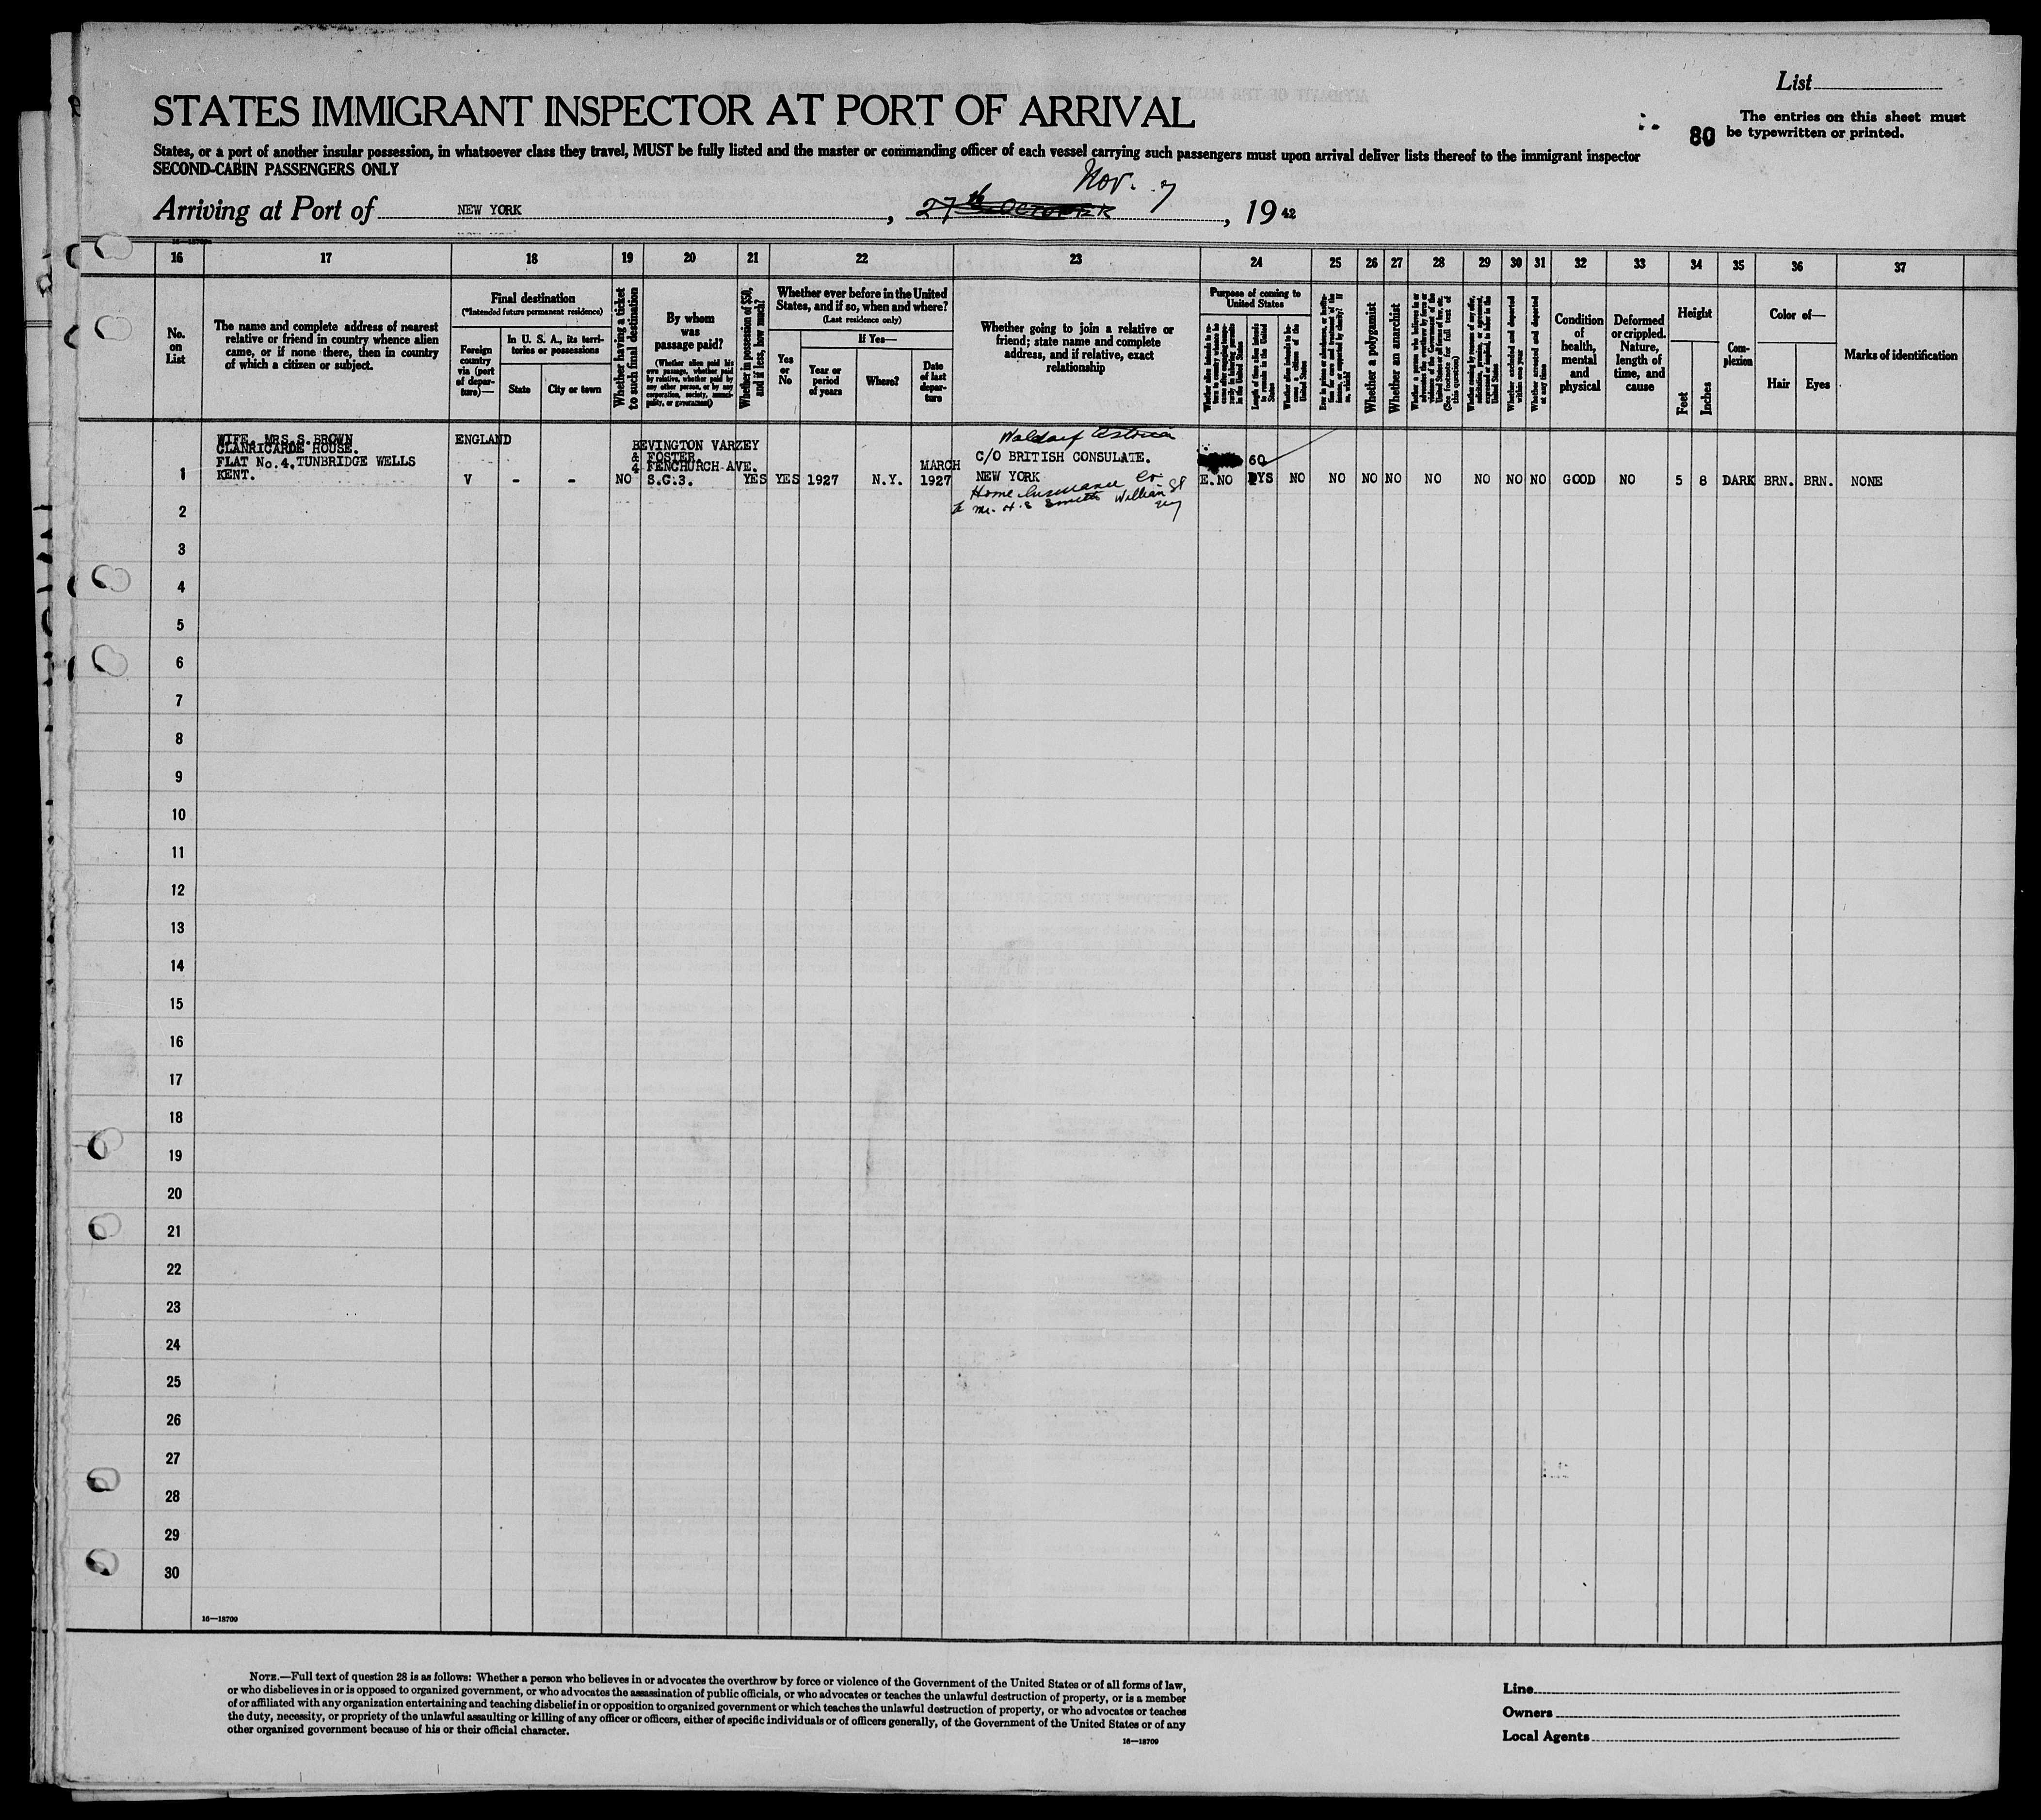 List
STATES IMMIGRANT INSPECTOR AT PORT OF ARRIVAL
80
The entries on this sheet must
be typewritten or printed.
States, or a port of another insular possession, in whatsoever class they travel, MUST be fully listed and the master or commanding officer of each vessel carrying such passengers must upon arrival deliver lists thereof to the immigrant inspector
SECOND-CABIN PASSENGERS ONLY
Nov. 7
Arriving at Port of NEW YORK, 27th OCTOBER, 19 42
16 17 18 19 20 21 22 23 24 25 26 27 28 29 30 31 32 33 34 35 36 37
No.
on
List
The name and complete address of nearest
relative or friend in country whence alien
came, or if none there, then in country
of which a citizen or subject.
Final destination
(*Intended future permanent residence)
Foreign
country
via (port
of depar-
ture)—
In U. S. A., its terri-
tories or possessions
State
City or town
Whether having a ticket
to such final destination
By whom
was
passage paid?
(Whether alien paid his
own passage, whether paid
by relative, whether paid by
any other person, or by any
corporation, society, munici-
pality, or government)
Whether in possession of $50,
and if less, how much?
Whether ever before in the United
States, and if so, when and where?
(Last residence only)
Yes
or
No
If Yes—
Year or
period
of years
Where?
Date
of last
depar-
ture
Whether going to join a relative or
friend; state name and complete
address, and if relative, exact
relationship
Purpose of coming to
United States
Length of time alien intends
to remain in the United
States
Whether alien intends to be-
come a citizen of the
United States
Whether a polygamist
Whether an anarchist
Whether arrested and deported
at any time
Condition
of
health,
mental
and
physical
Deformed
or crippled.
Nature,
length of
time, and
cause
Height
Feet
Inches
Com-
plexion
Color of—
Hair
Eyes
Marks of identification
1
WIFE. MRS S. BROWN
CLANRICARDE HOUSE.
FLAT No. 4. TUNBRIDGE WELLS
KENT.
ENGLAND
V - - NO
BEVINGTON VARZEY
& FOSTER.
4 FENCHURCH AVE.
S.C.3.
YES YES 1927 N.Y.
MARCH
1927
Waldorf Astoria
C/O BRITISH CONSULATE.
NEW YORK
Home Insurance Co
Mr. H. E Smith William St
NY
E. NO
60
DYS NO NO NO NO NO NO NO NO GOOD NO 5 8 DARK BRN. BRN. NONE
2
3
4
5
6
7
8
9
10
11
12
13
14
15
16
17
18
19
20
21
22
23
24
25
26
27
28
29
30
16—18709
NOTE.—Full text of question 28 is as follows: Whether a person who believes in or advocates the overthrow by force or violence of the Government of the United States or of all forms of law,
or who disbelieves in or is opposed to organized government, or who advocates the assassination of public officials, or who advocates or teaches the unlawful destruction of property, or is a member
of or affiliated with any organization entertaining and teaching disbelief in or opposition to organized government or which teaches the unlawful destruction of property, or who advocates or teaches
the duty, necessity, or propriety of the unlawful assaulting or killing of any officer or officers, either of specific individuals or of officers generally, of the Government of the United States or of any
other organized government because of his or their official character.
16—18709
Line
Owners
Local Agents